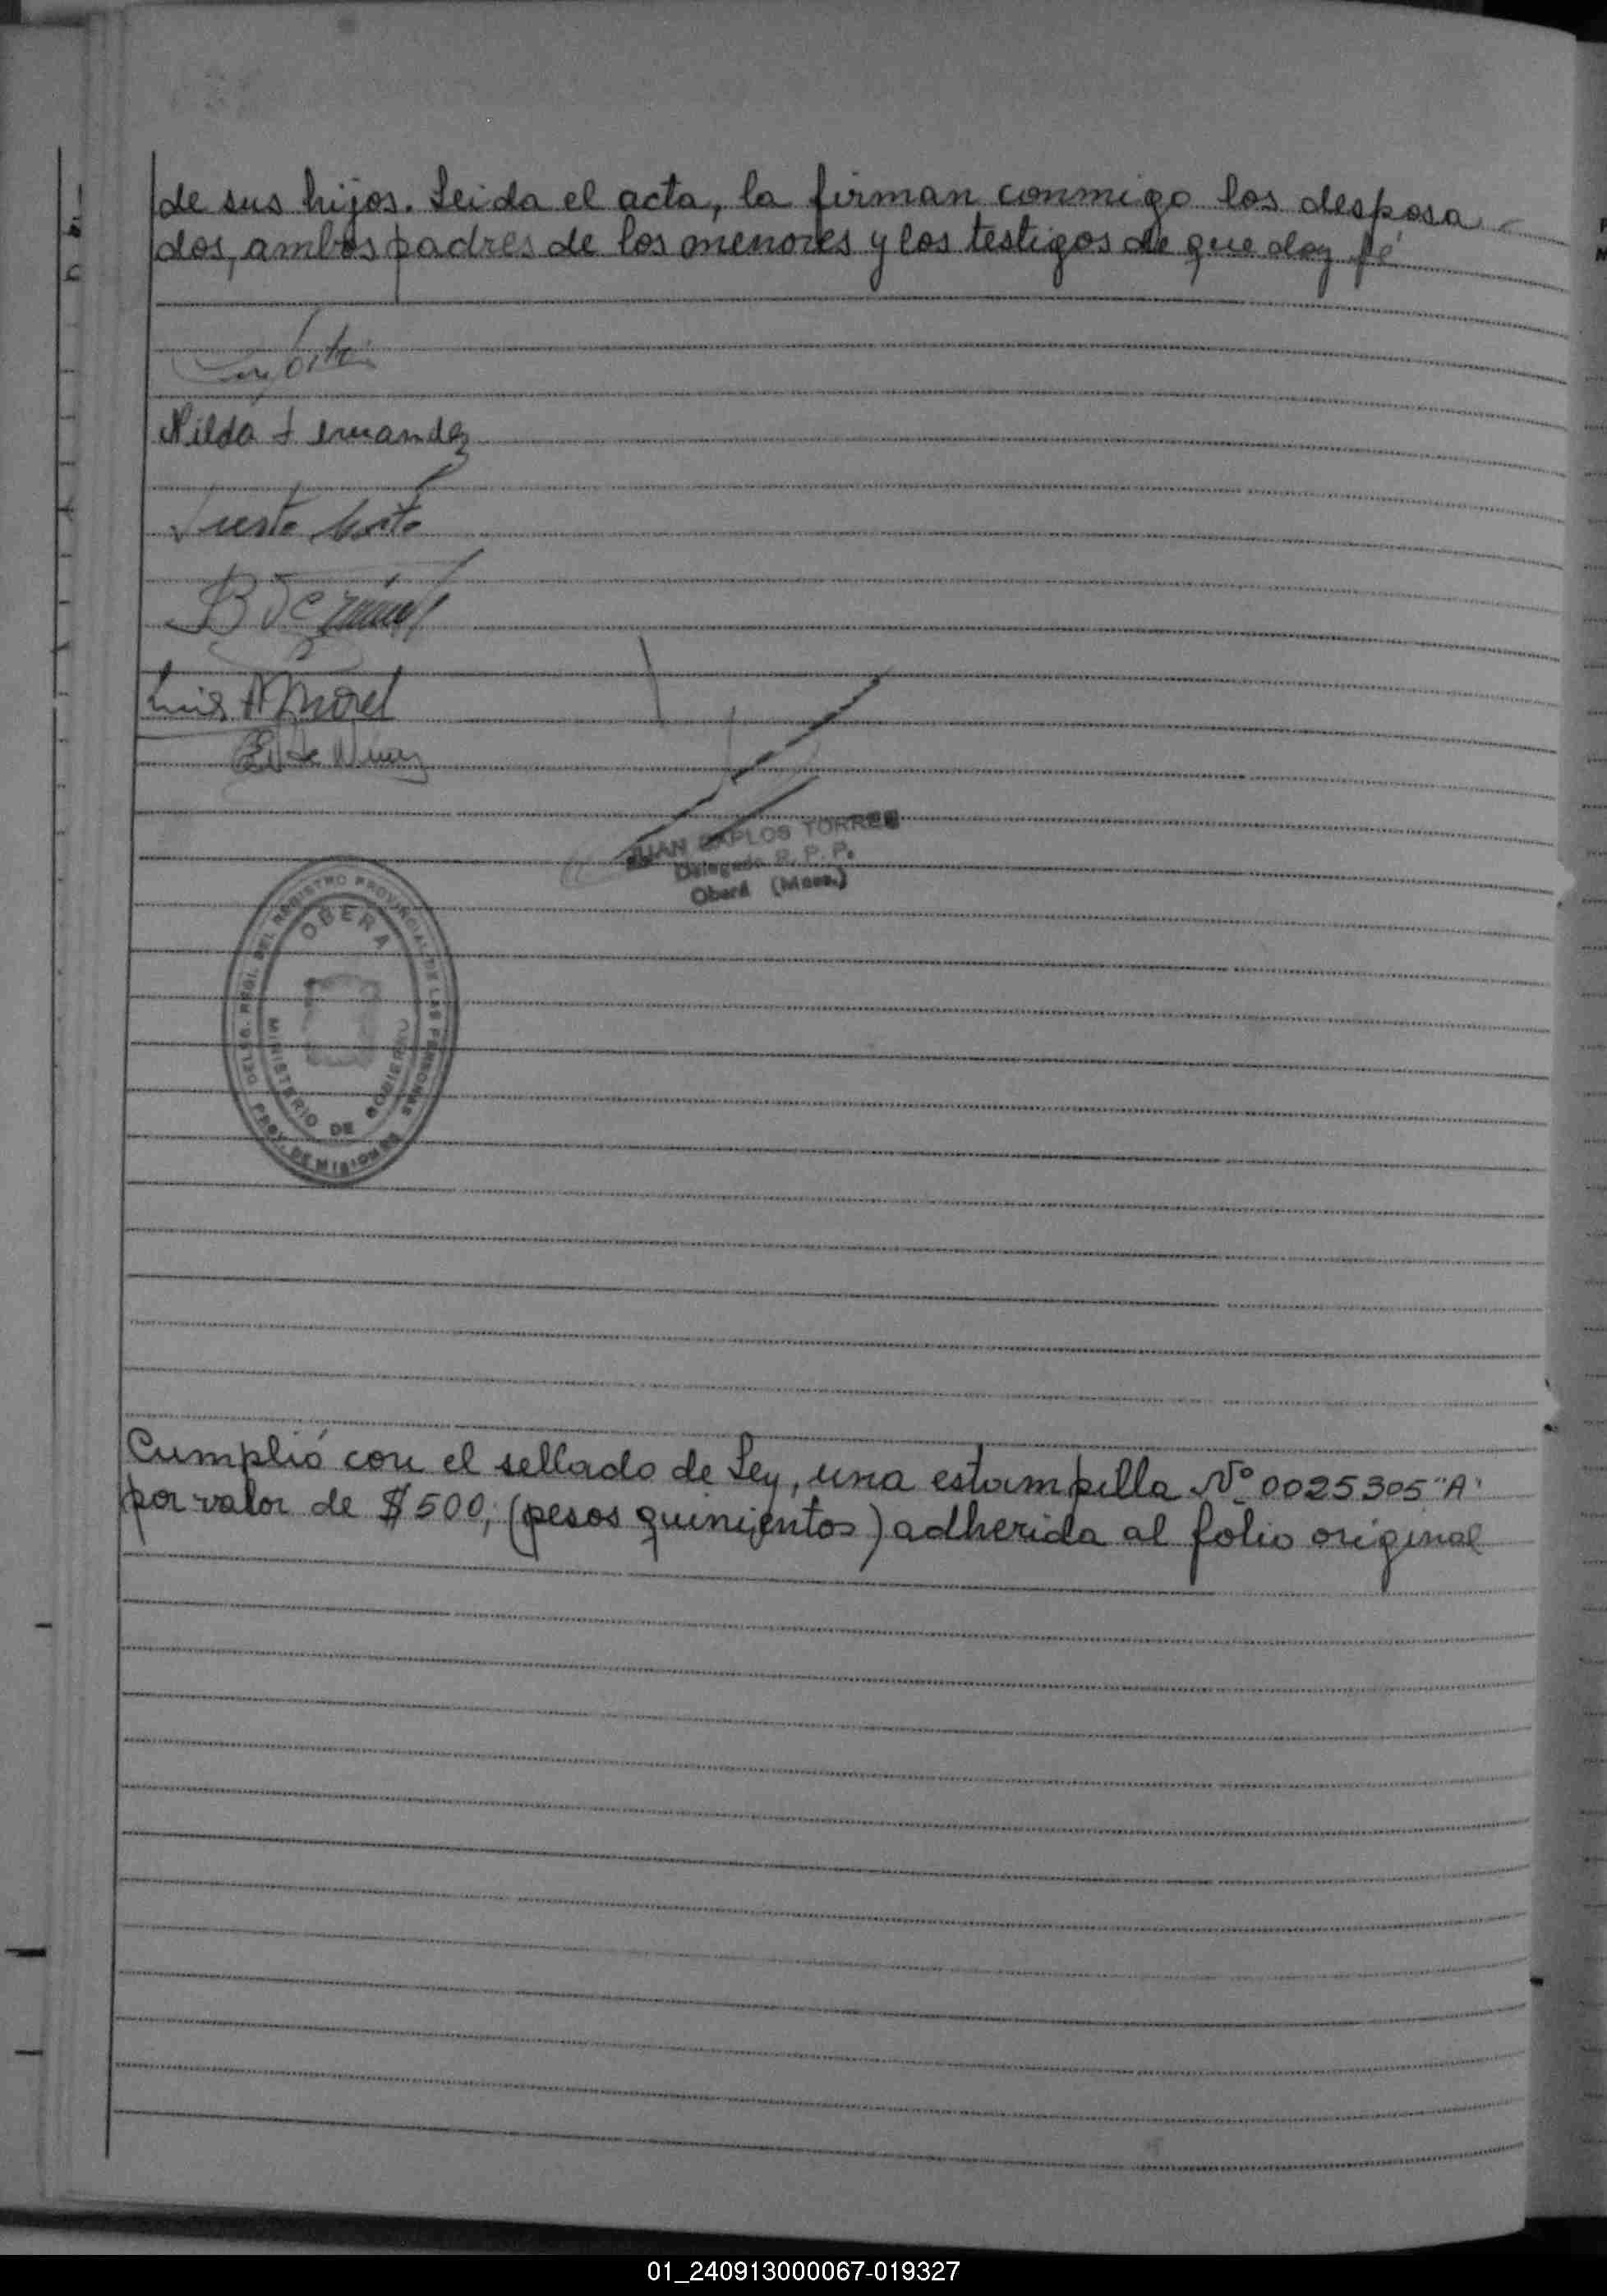 de sus hijos. Leida el acta, la firman conmigo los desposa-
dos, ambos padres de los menores y los testigos de que doy fé
Nilda Fernandez
Justo
Luis A Morel
JUAN CARLOS TORRES
Delegado R. P. P.
Oberá (Mnes.)
DELEG. REGI. DEL REGISTRO PROVINCIAL DE LAS PERSONAS
OBERA
MINISTERIO DE GOBIERNO
PROV. DE MISIONES
Cumplió con el sellado de Ley, una estampilla Nº 0025305 "A"
por valor de $500, (pesos quinientos) adherida al folio original
01_240913000067-019327